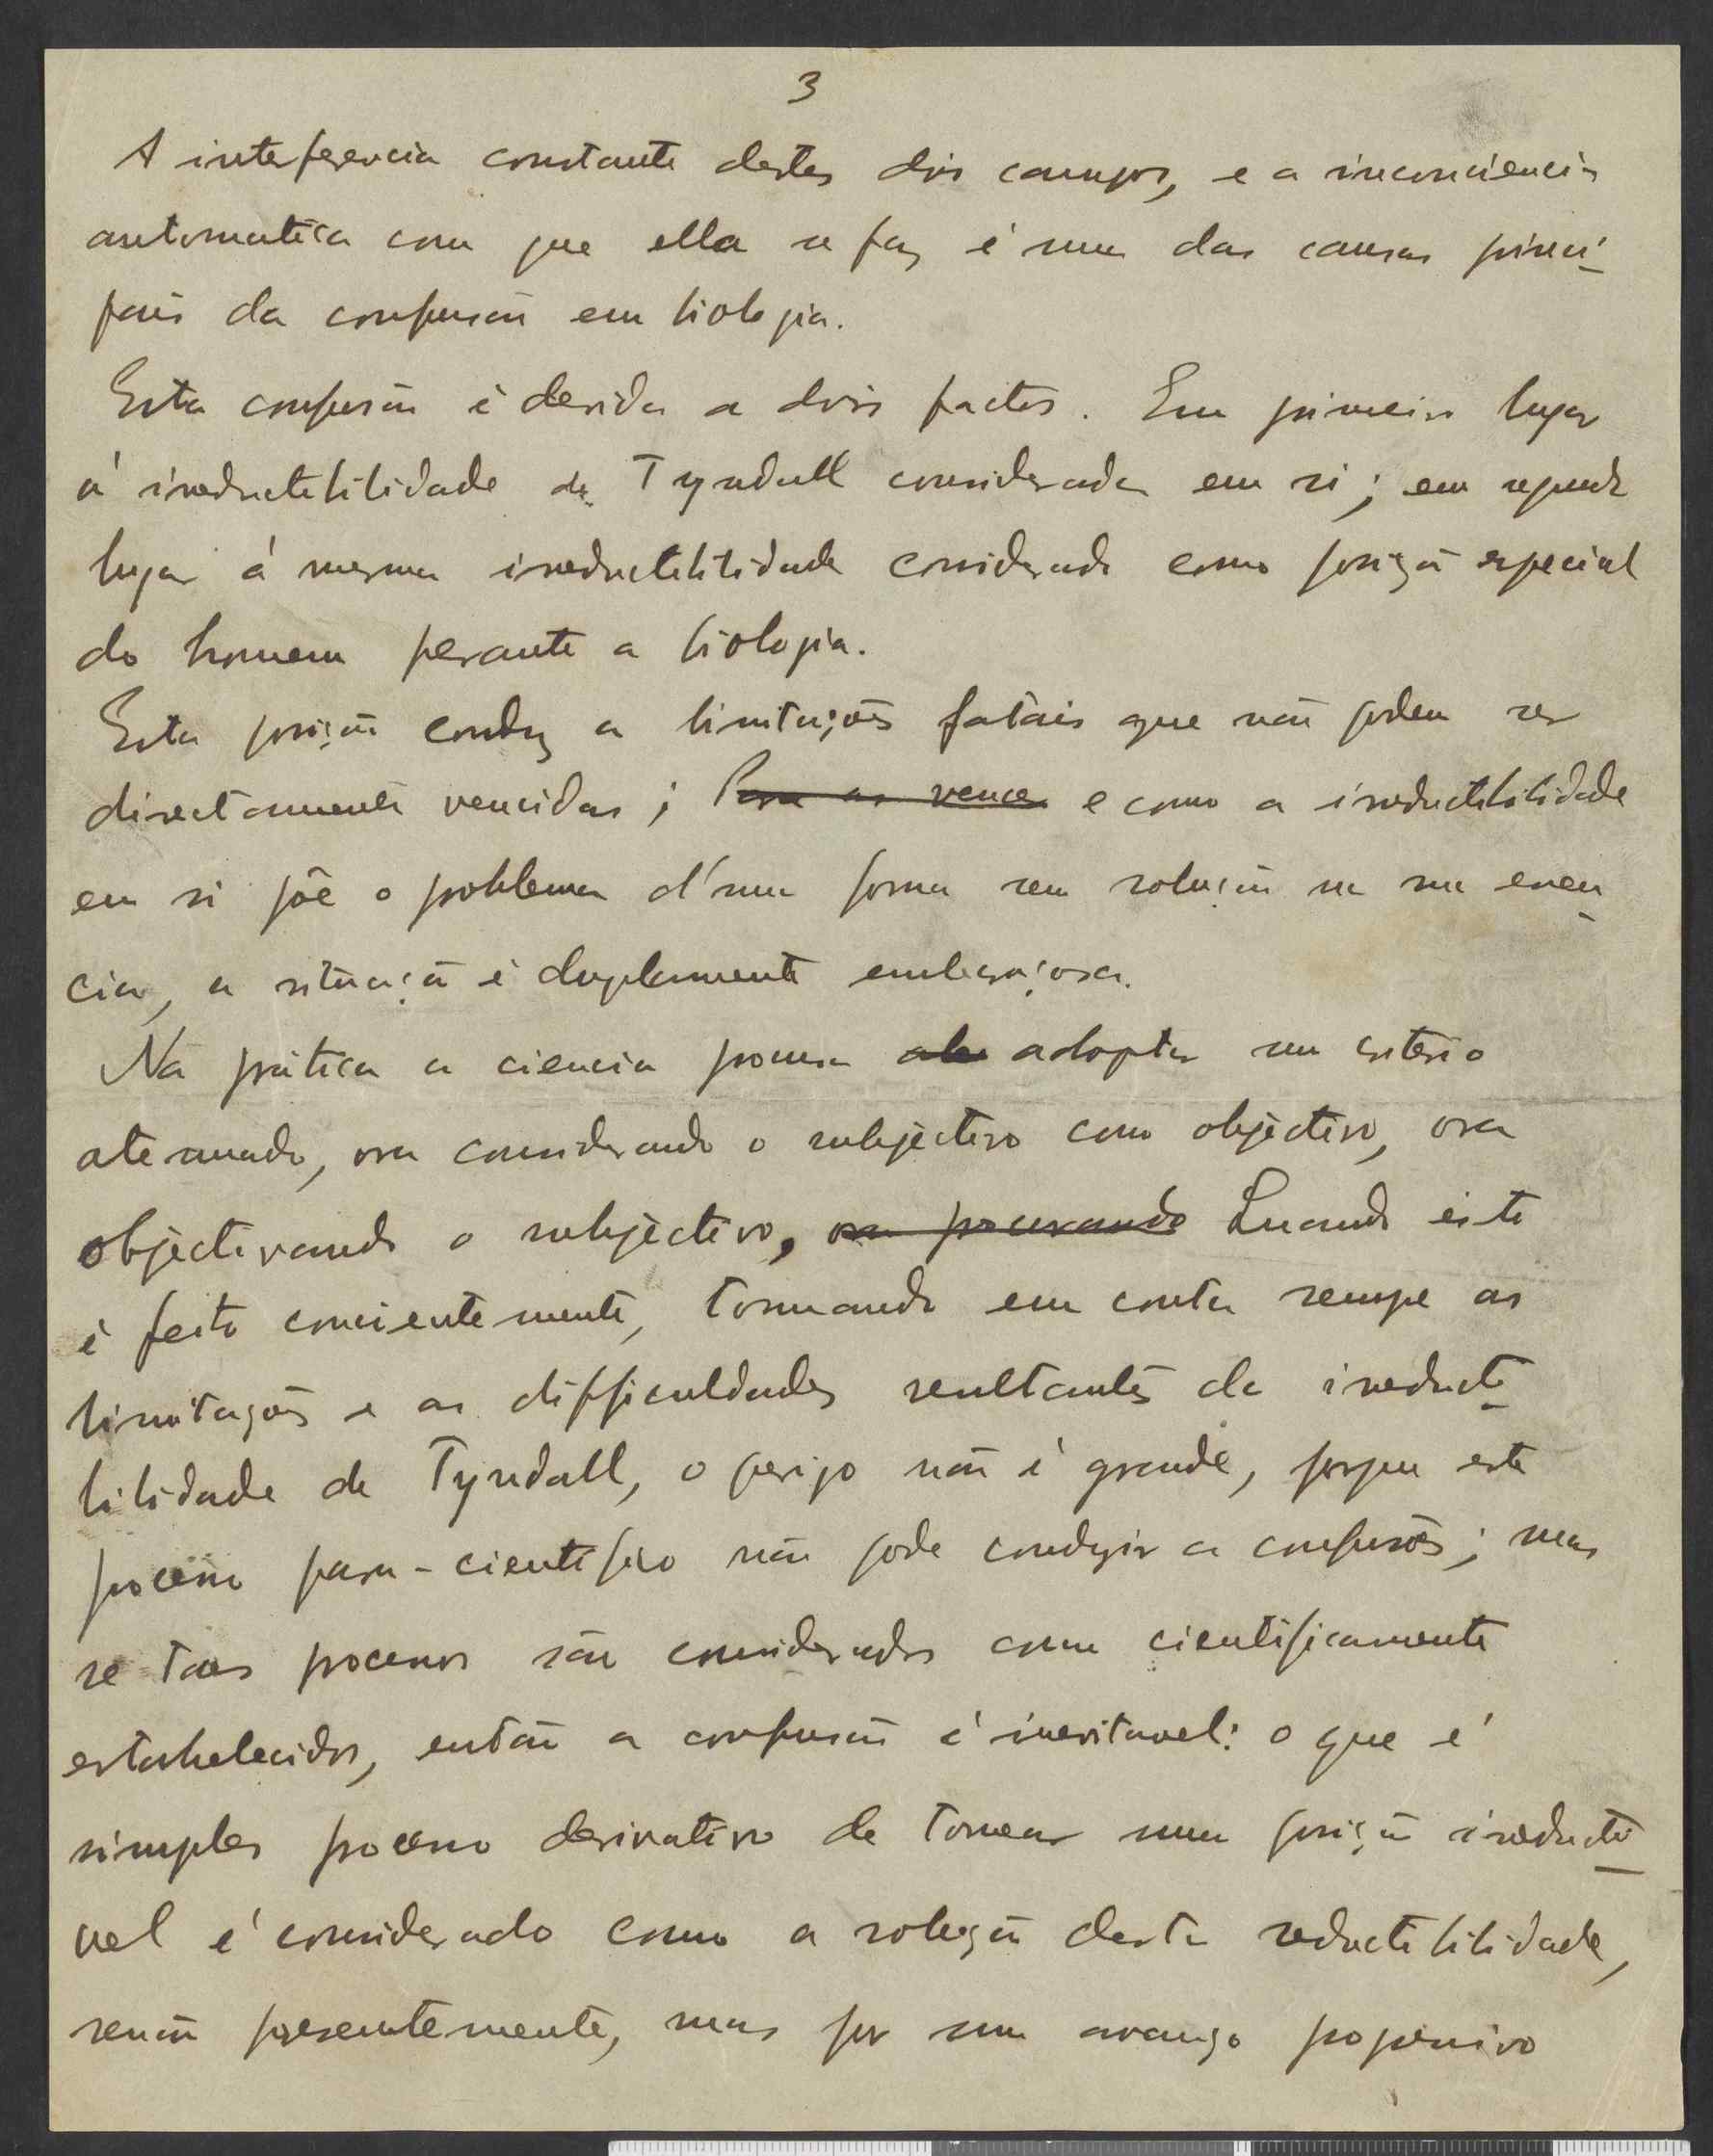 3
A interferencia constante destes dois campos, e a inconciencia
automatica com que ella se faz é uma das causas princi-
pais da confusão em biologia.
Esta confusão é devida a dois factos. Em primeiro lugar
á irreductibilidade de Tyndall considerada em si; em segundo
lugar á mesma irreductibilidade considerada como posição especial
do homem perante a biologia.
Esta posição conduz a limitações fatais que não podem ser
directamente vencidas; Para as vencer e como a irreductibilidade
em si põe o problema d'uma forma sem solução na sua essen-
cia, a situação é duplamente embaraçosa.
Na prática a ciencia procura adoptar um criterio
alternado, ora considerando o subjectivo como objectivo, ora
objectivando o subjectivo, ora procurando Quando isto
é feito concientemente, tomando em conta sempre as
limitações e as difficuldades resultantes da irreducti-
bilidade de Tyndall, o perigo não é grande, porque este
processo para-cientifico não pode conduzir a confusões; mas
se taes processos são considerados como cientificamente
estabelecidos, então a confusão é inevitavel: o que é
simples processo derivativo de tornear uma posição irreducti-
vel é considerado como a solução desta reductibilidade,
senão presentemente, mas por um avanço progressivo